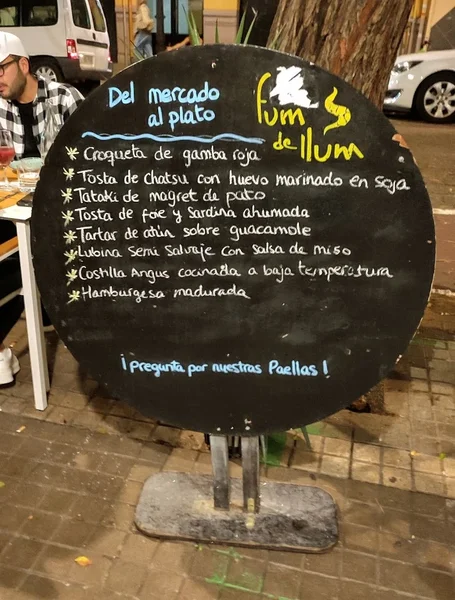 Del mercado
al plato
fum
de llum
Croqueta de gamba roja
Tosta de chatsu con huevo marinado en soja
Tataki de magret de pato
Tosta de foie y Sardina ahumada
Tartar de atún sobre guacamole
Lubina Semi Salvaje con salsa de miso
Costilla Angus cocinada a baja temperatura
Hamburgesa madurada
¡pregunta por nuestras Paellas!